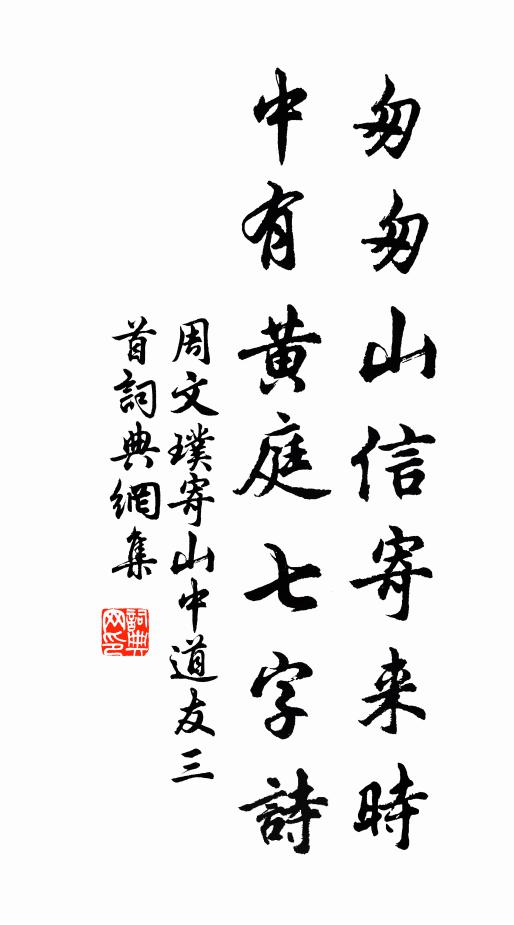 匆匆山信寄来時
中有黄庭七字詩
周文璞寄山中道友三
首詞典網集
詞典
网印